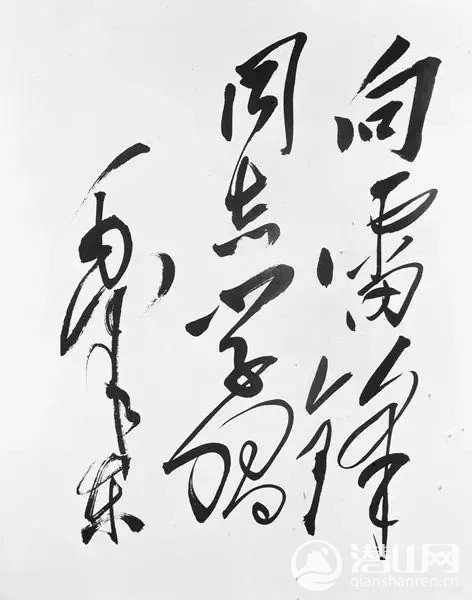 向雷锋
同志学习
毛泽东
潜山网
qianshanren.cn